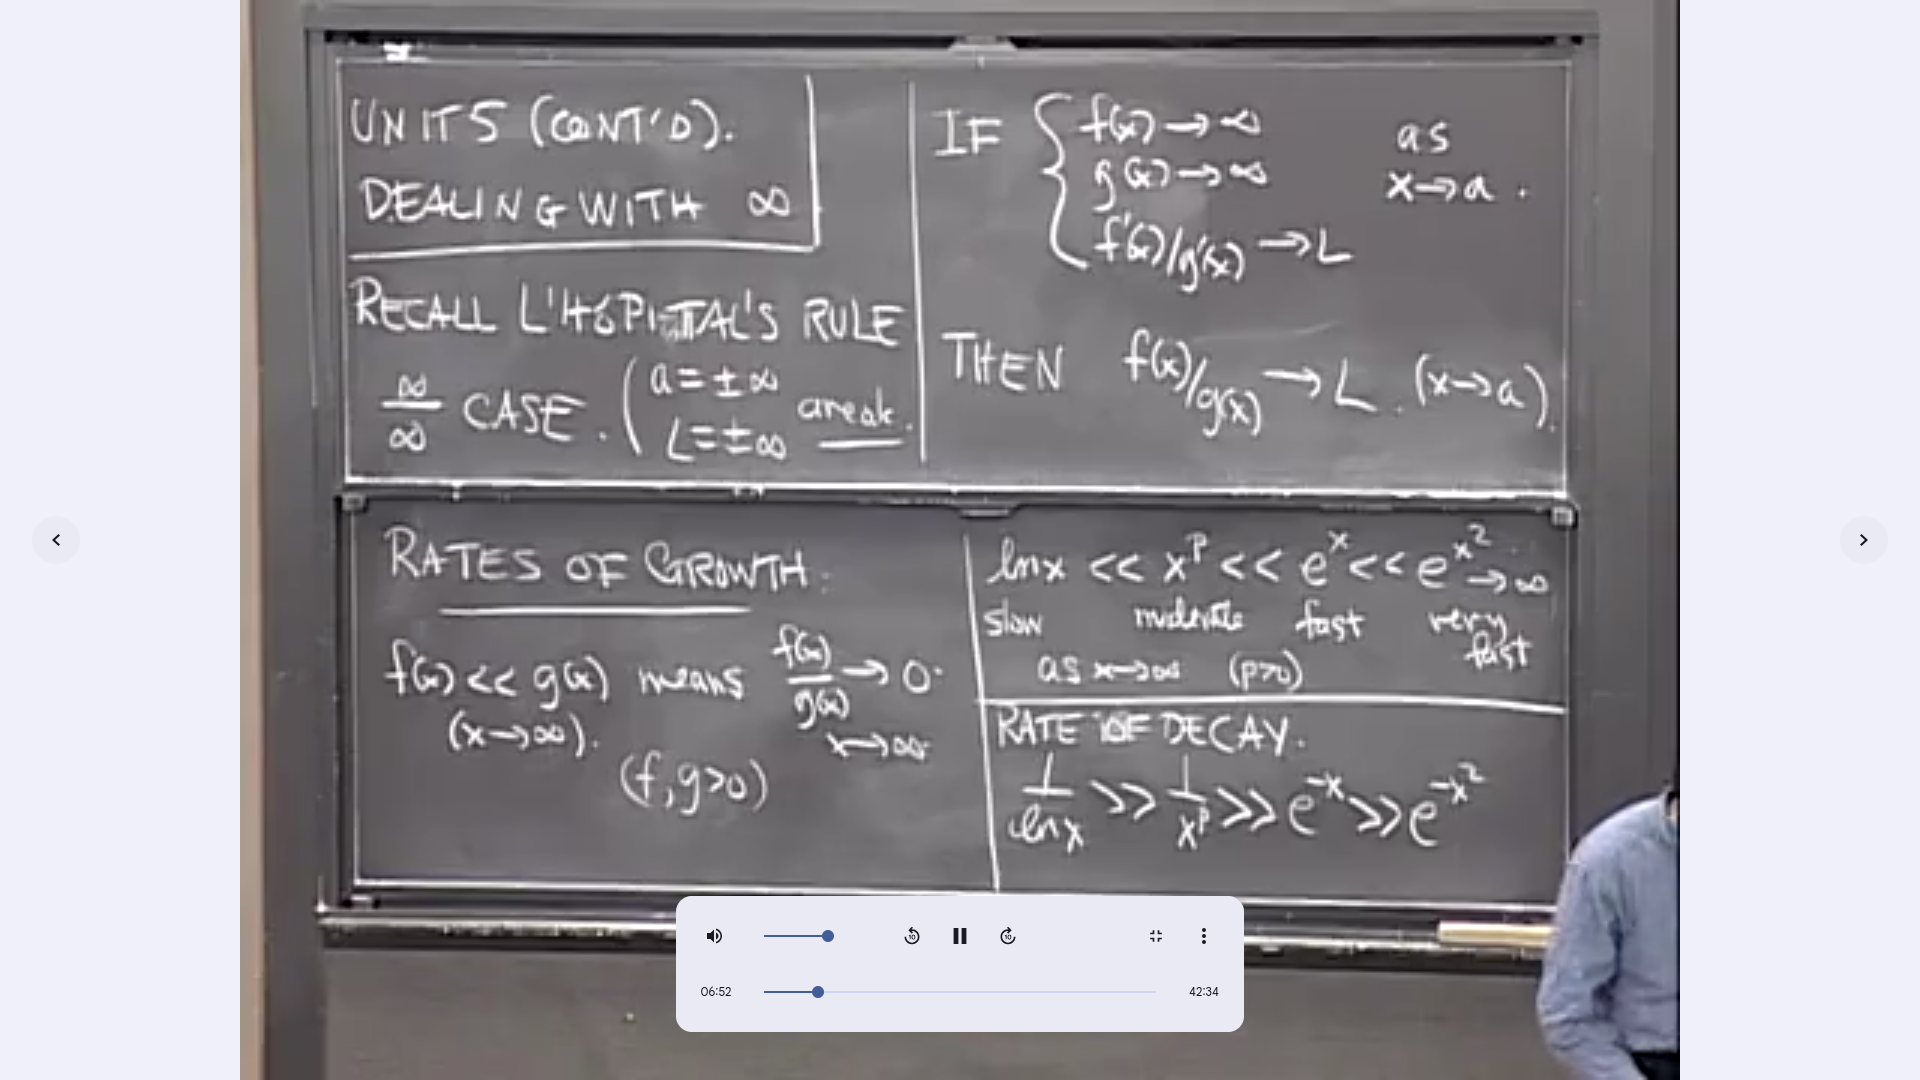 UNIT 5 (CONT'D).
DEALING WITH ∞
RECALL L'HÔPITAL'S RULE
∞/∞ CASE. ( a = ± ∞
L = ± ∞ are ok.
IF { f(x) → ∞
g(x) → ∞
f'(x)/g'(x) → L
as
x → a .
THEN f(x)/g(x) → L . (x → a).
RATES OF GROWTH.
f(x) << g(x) means f(x)/g(x) → 0.
(x → ∞).
x → ∞.
(f, g > 0)
ln x << x^p << e^x << e^x^2 → ∞
slow moderate fast very fast
as x → ∞ (p>0)
RATE OF DECAY.
1/ln x >> 1/x^p >> e^-x >> e^-x^2
10 10
06:52 42:34